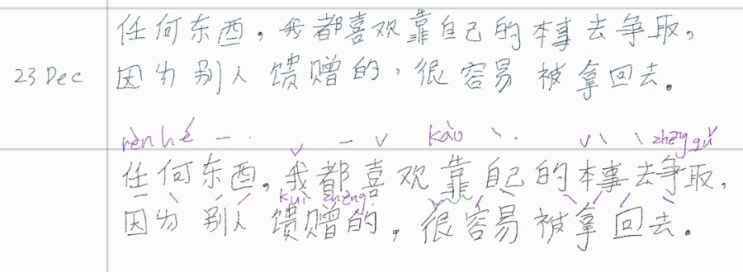 任何东西，我都喜欢靠自己的本事去争取，
23 Dec 因为别人馈赠的，很容易被拿回去。
rèn hé kào zhēng qǔ
任何东西，我都喜欢靠自己的本事去争取，
kuì zèng
因为别人馈赠的，很容易被拿回去。